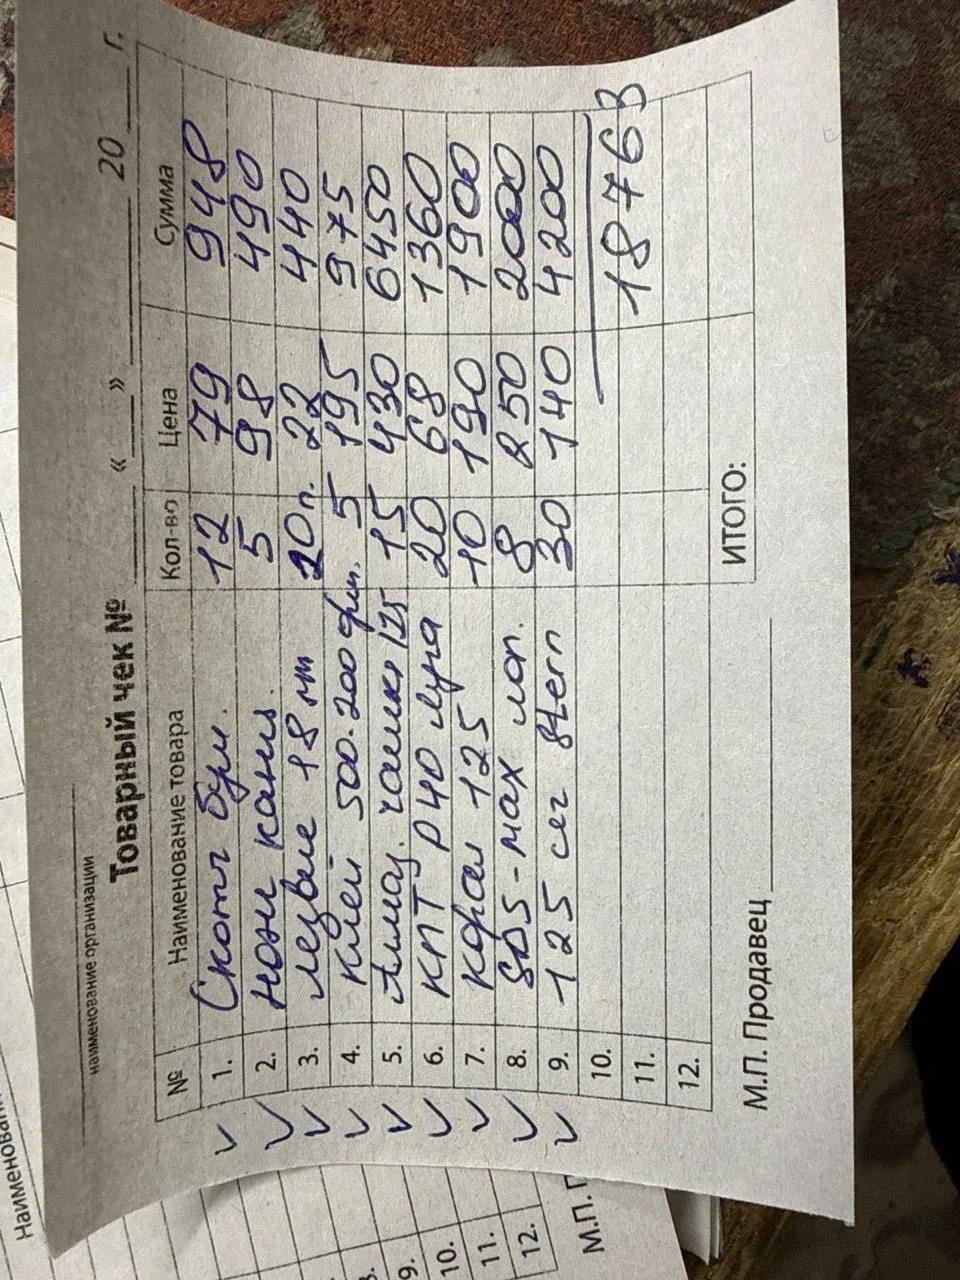 наименование организации
Товарный чек № « » 20 г.
№ Наименование товара Кол-во Цена Сумма
1. Скотч бум. 12 79 948
2. нож канц. 5 98 490
3. лезвие 18 мм 20п. 22 440
4. клей 500.200 фиш. 5 195 975
5. Алмаз. чашки 125 15 430 6450
6. КПТ Р40 луга 20 68 1360
7. корал 125 10 190 1900
8. SDS-max лоп. 8 250 2000
9. 125 сег stern 30 140 4200
10. 18763
11.
12.
ИТОГО:
М.П. Продавец
Наименование
9.
10.
11.
12.
М.П.